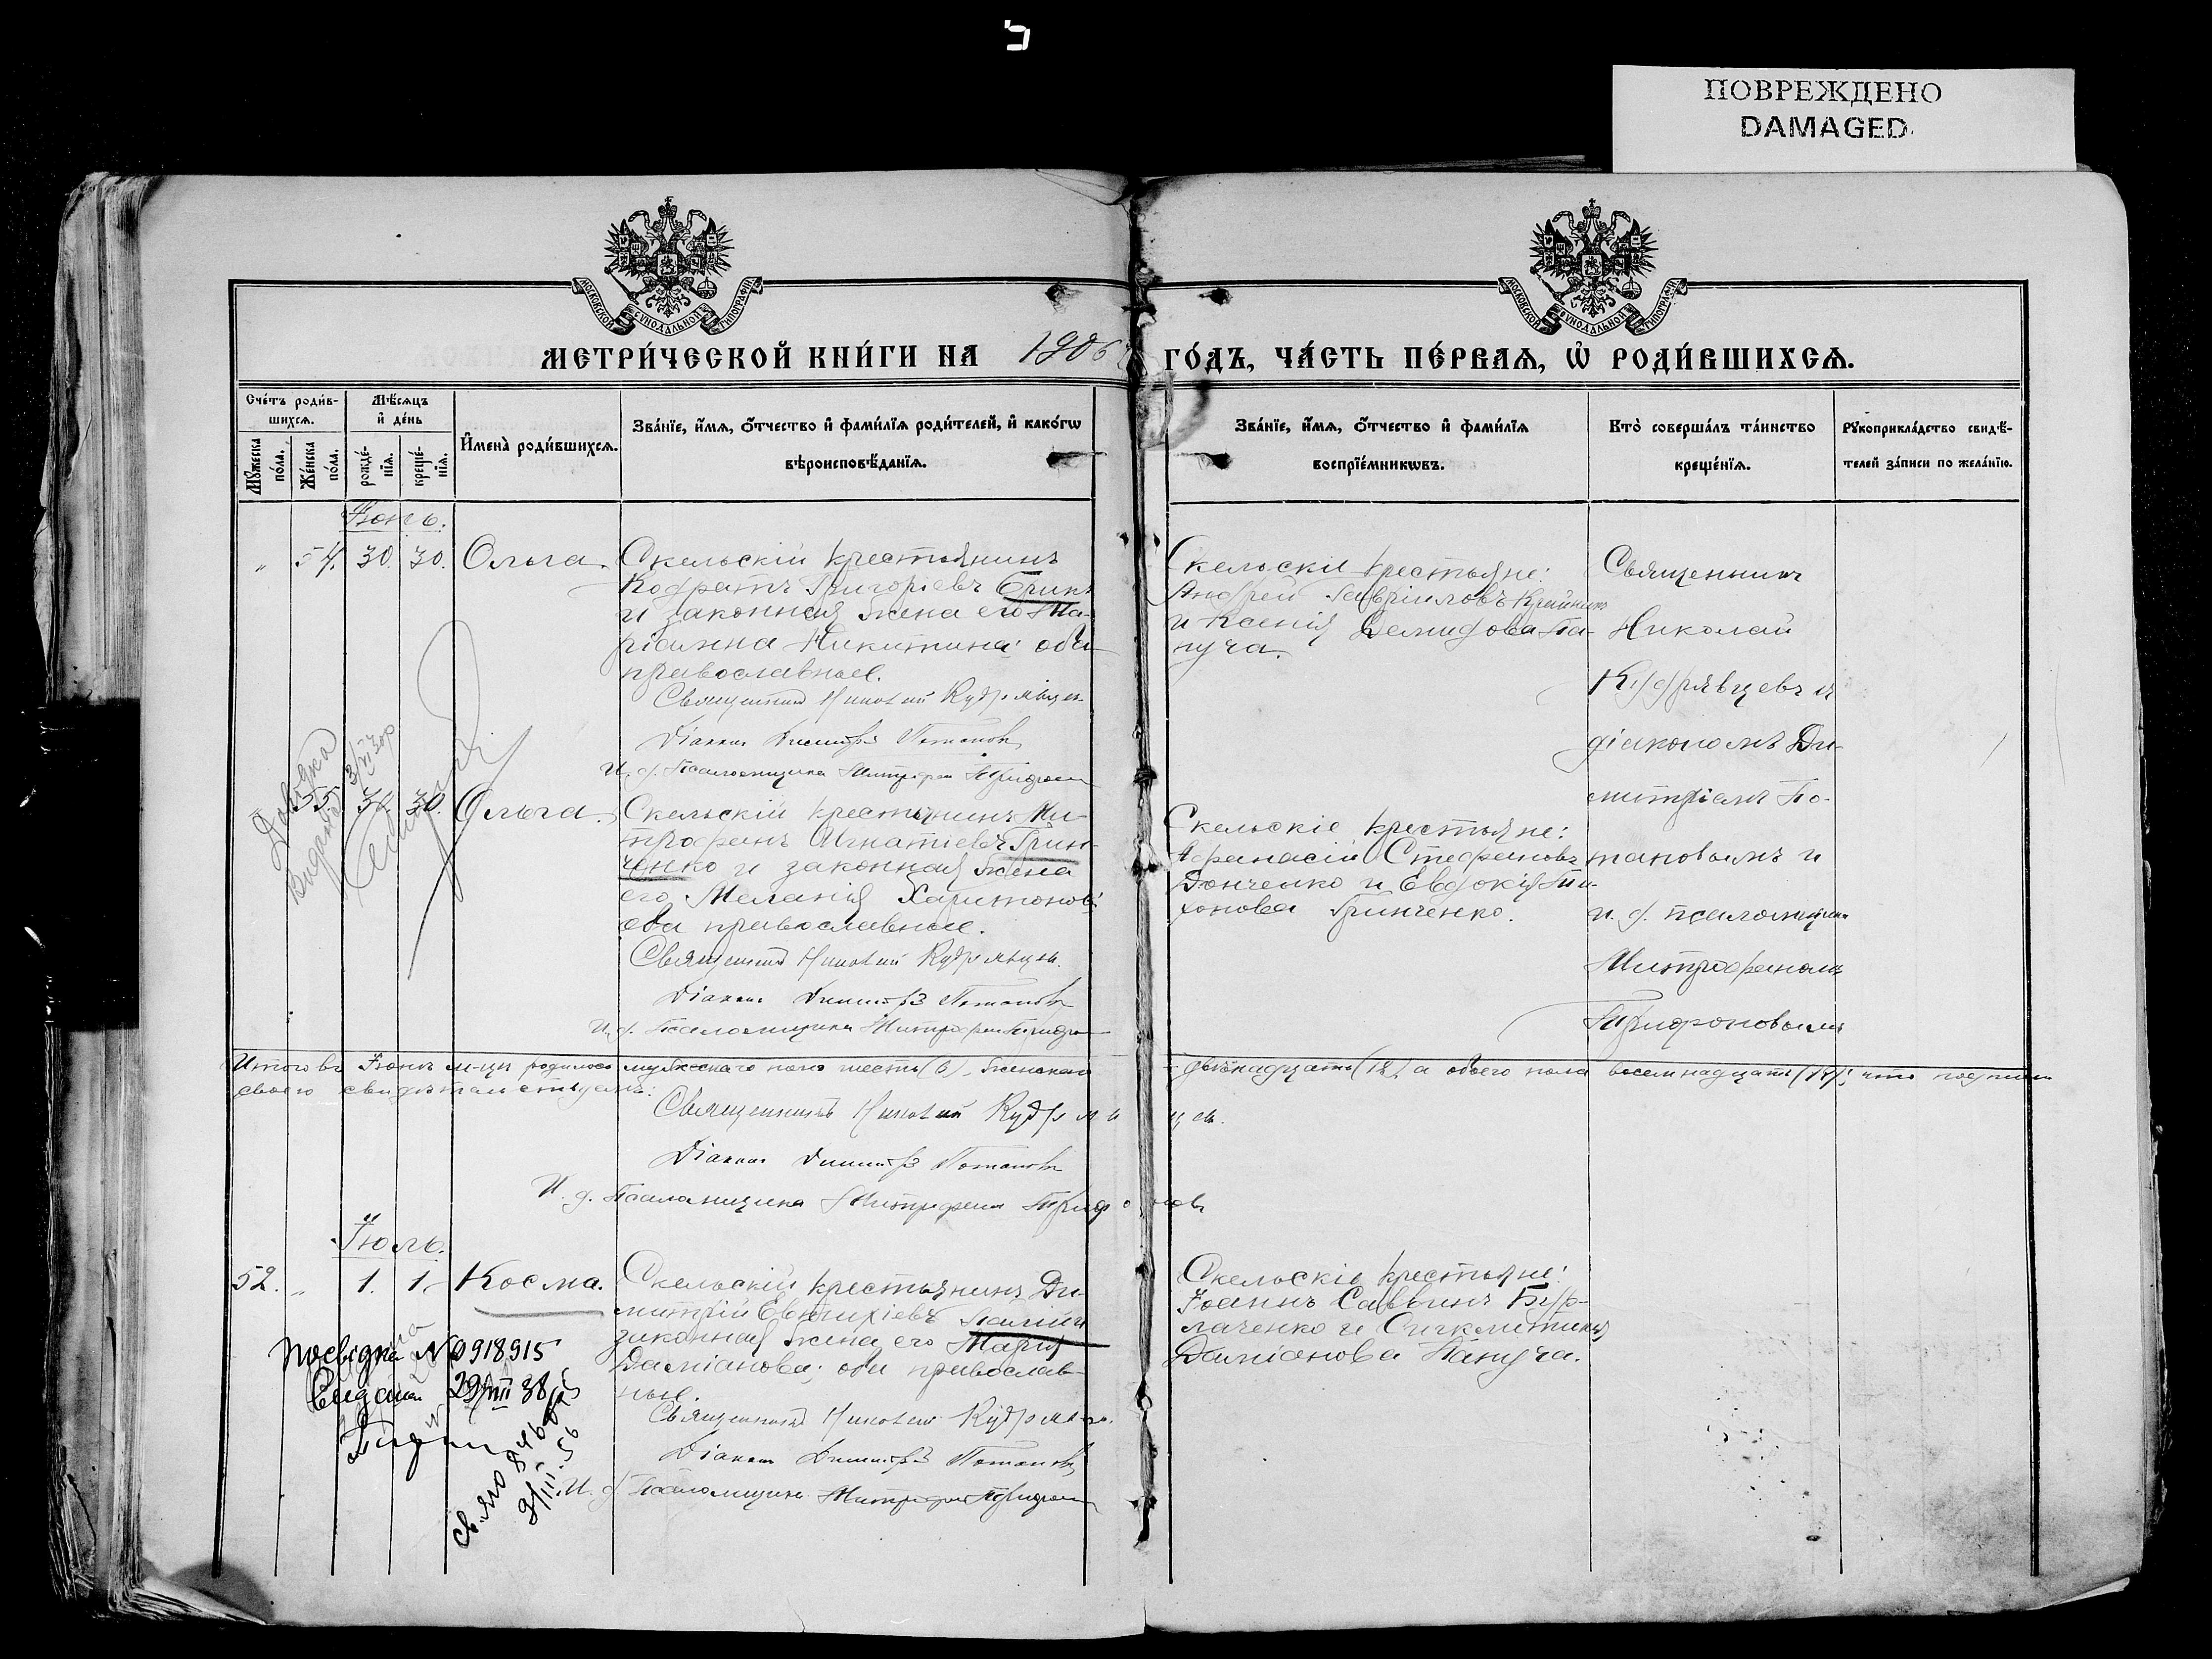 ПОВРЕЖДЕНО
DAMAGED
МОСКОВСКОЙ СѴНОДАЛЬНОЙ ТИПОГРАФІИ
МОСКОВСКОЙ СѴНОДАЛЬНОЙ ТИПОГРАФІИ
МЕТРИ́ЧЕСКОЙ КНИ́ГИ НА 1906 ГО́ДЪ, ЧА́СТЬ ПЕ́РВАѦ, Ѡ҆ РОДИ́ВШИХСѦ.
Сче́тъ роди́в-
шихсѧ.
Мѣ́сѧцъ
и҆ де́нь
Мꙋ́жеска
по́ла.
Же́нска
по́ла.
рожде́-
нїѧ.
креще́-
нїѧ.
И҆мена̀ роди́вшихсѧ.
Зва́нїе, и҆́мѧ, ѻ҆́тчество и҆ фами́лїѧ роди́телей, и҆ како́гѡ
вѣроисповѣ́данїѧ.
Зва́нїе, и҆́мѧ, ѻ҆́тчество и҆ фами́лїѧ
воспрїе́мникѡвъ.
Кто̀ соверша́лъ та́инство
креще́нїѧ.
Рꙋкоприкла́дство свидѣ́-
телей за́писи по жела́нїю.
Іюнь.
" 54. 30. 30. Ольга.
Скельскій крестьянинъ
Кодратъ Григоріевъ
и законная жена его Ма-
ріанна Никитина; оба
православные.
Священникъ Николай Кудрявцевъ
Діаконъ Димитрій Потаповъ
И. д. Псаломщика Митрофанъ Трифоновъ
Скельскіе крестьяне:
Андрей Гавріиловъ Крайникъ
и Ксенія Демидова Па-
нуча.
Священникъ
Николай
Кудрявцевъ и
діакономъ Ди-
митріемъ По-
таповымъ и
и. д. псаломщика
Митрофаномъ
Трифоновымъ
Довідка
видана
55. 30. 30. Ольга.
Скельскій крестьянинъ Ми-
трофанъ Игнатіевъ Грин-
ченко и законная жена
его Меланія Харитонова;
оба православные.
Священникъ Николай Кудрявцевъ
Діаконъ Димитрій Потаповъ
И. д. Псаломщика Митрофанъ Трифоновъ
Скельскіе крестьяне:
Афанасій Стефановъ
Донченко и Евдокія Ти-
хонова Гринченко.
Итого въ Іюнѣ м-цѣ родилось мужескаго пола шесть (6), женскаго двѣнадцать (12), а обоего пола восемнадцать (18); что подписомъ
своего свидѣтельствуемъ:
Священникъ Николай Кудрявцевъ
Діаконъ Димитрій Потаповъ
И. д. Псаломщика Митрофанъ Трифоновъ
Іюль.
52. " 1. 1. Косма.
Скельскій крестьянинъ Ди-
митрій Евтихіевъ Палій и
законная жена его Марія
Даміанова; оба православ-
ные.
Священникъ Николай Кудрявцевъ
Діаконъ Димитрій Потаповъ
И. д. Псаломщика Митрофанъ Трифоновъ
Скельскіе крестьяне:
Іоаннъ Саввинъ Бур-
лаченко и Сигклитикія
Даміанова Пануча.
Посвідка № 0918915
Видана 29/VIII 38